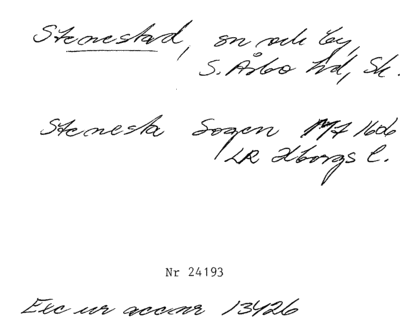 Stenestad, sn och by,
S. Åsbo hd, Sk.
Stenesta Sogen MA 1606
LR Hborgs l.
Nr 24193
Exc ur accnr 13426